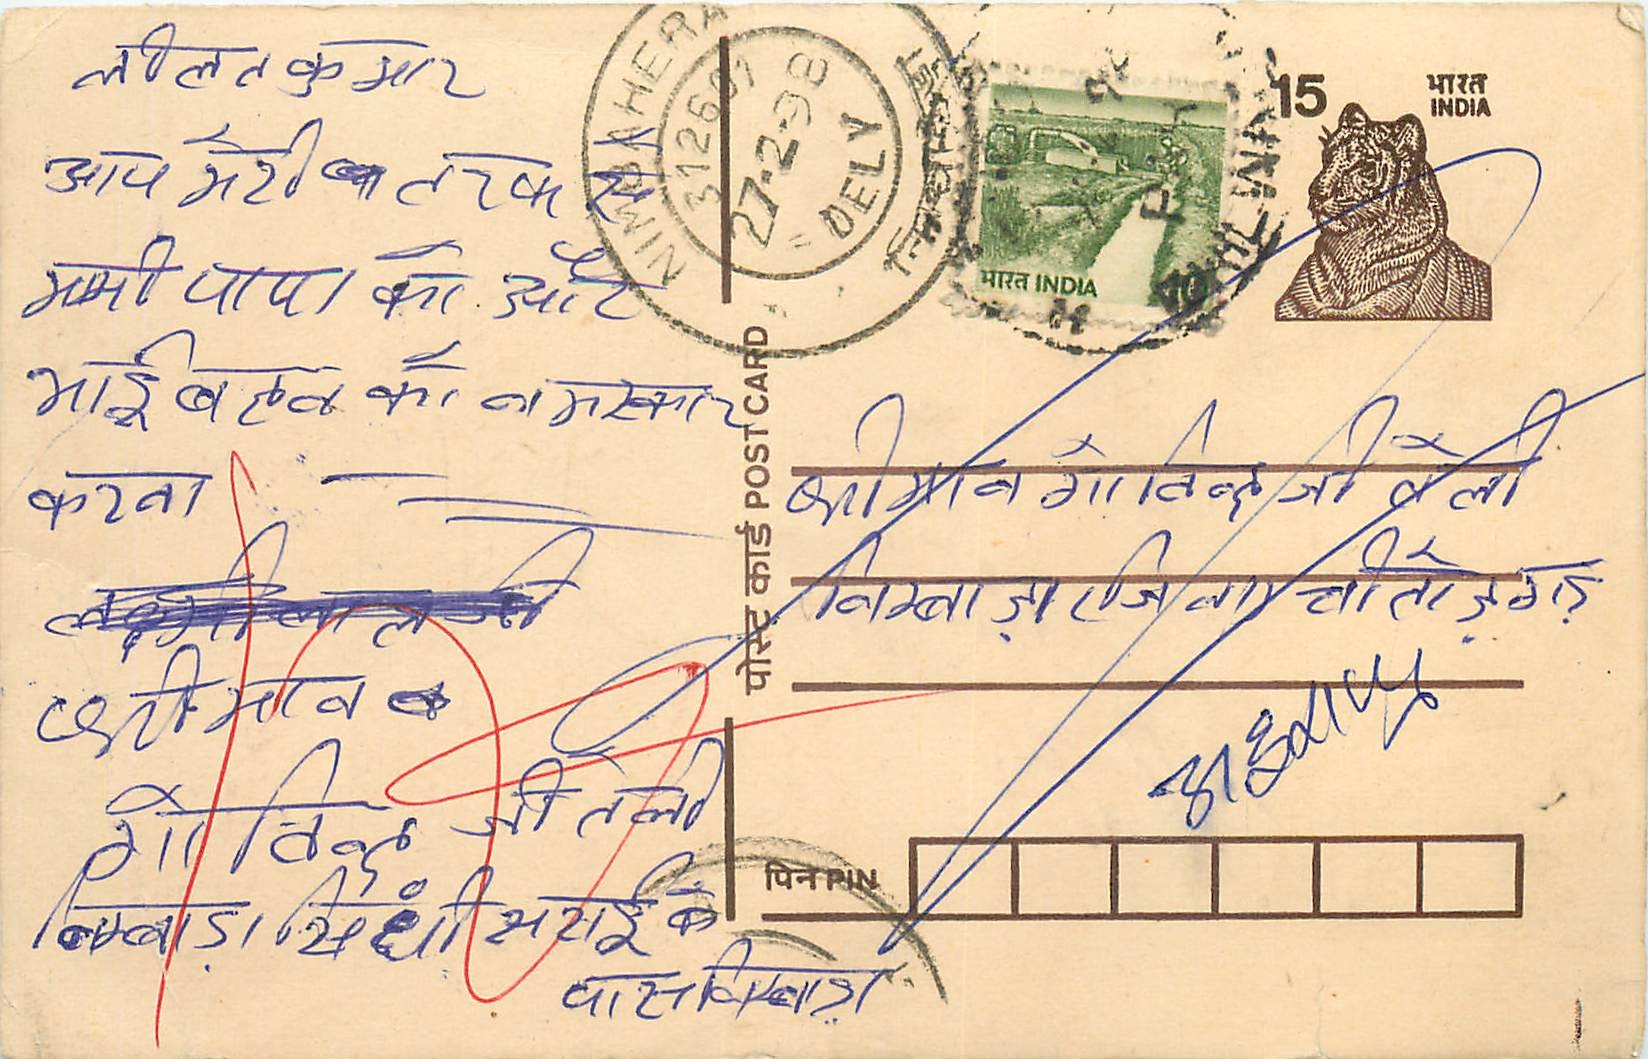 ललित कुमार
आप मेरी तरफ से
मम्मी पापा को और
भाई बहन को नमस्कार
करना
लक्ष्मीलाल जी
श्रीमान
गोविन्द जी तेली
निम्बाड़ा सिंधी सराई के
पास निम्बाड़ा
NIMBAHERA
312601
27-2-98
DELY
भारत INDIA
15
भारत
INDIA
पोस्ट कार्ड POST CARD
श्रीमान गोविन्द जी तेली
निम्बाड़ा जिला चीतोड़गड़
पिन PIN